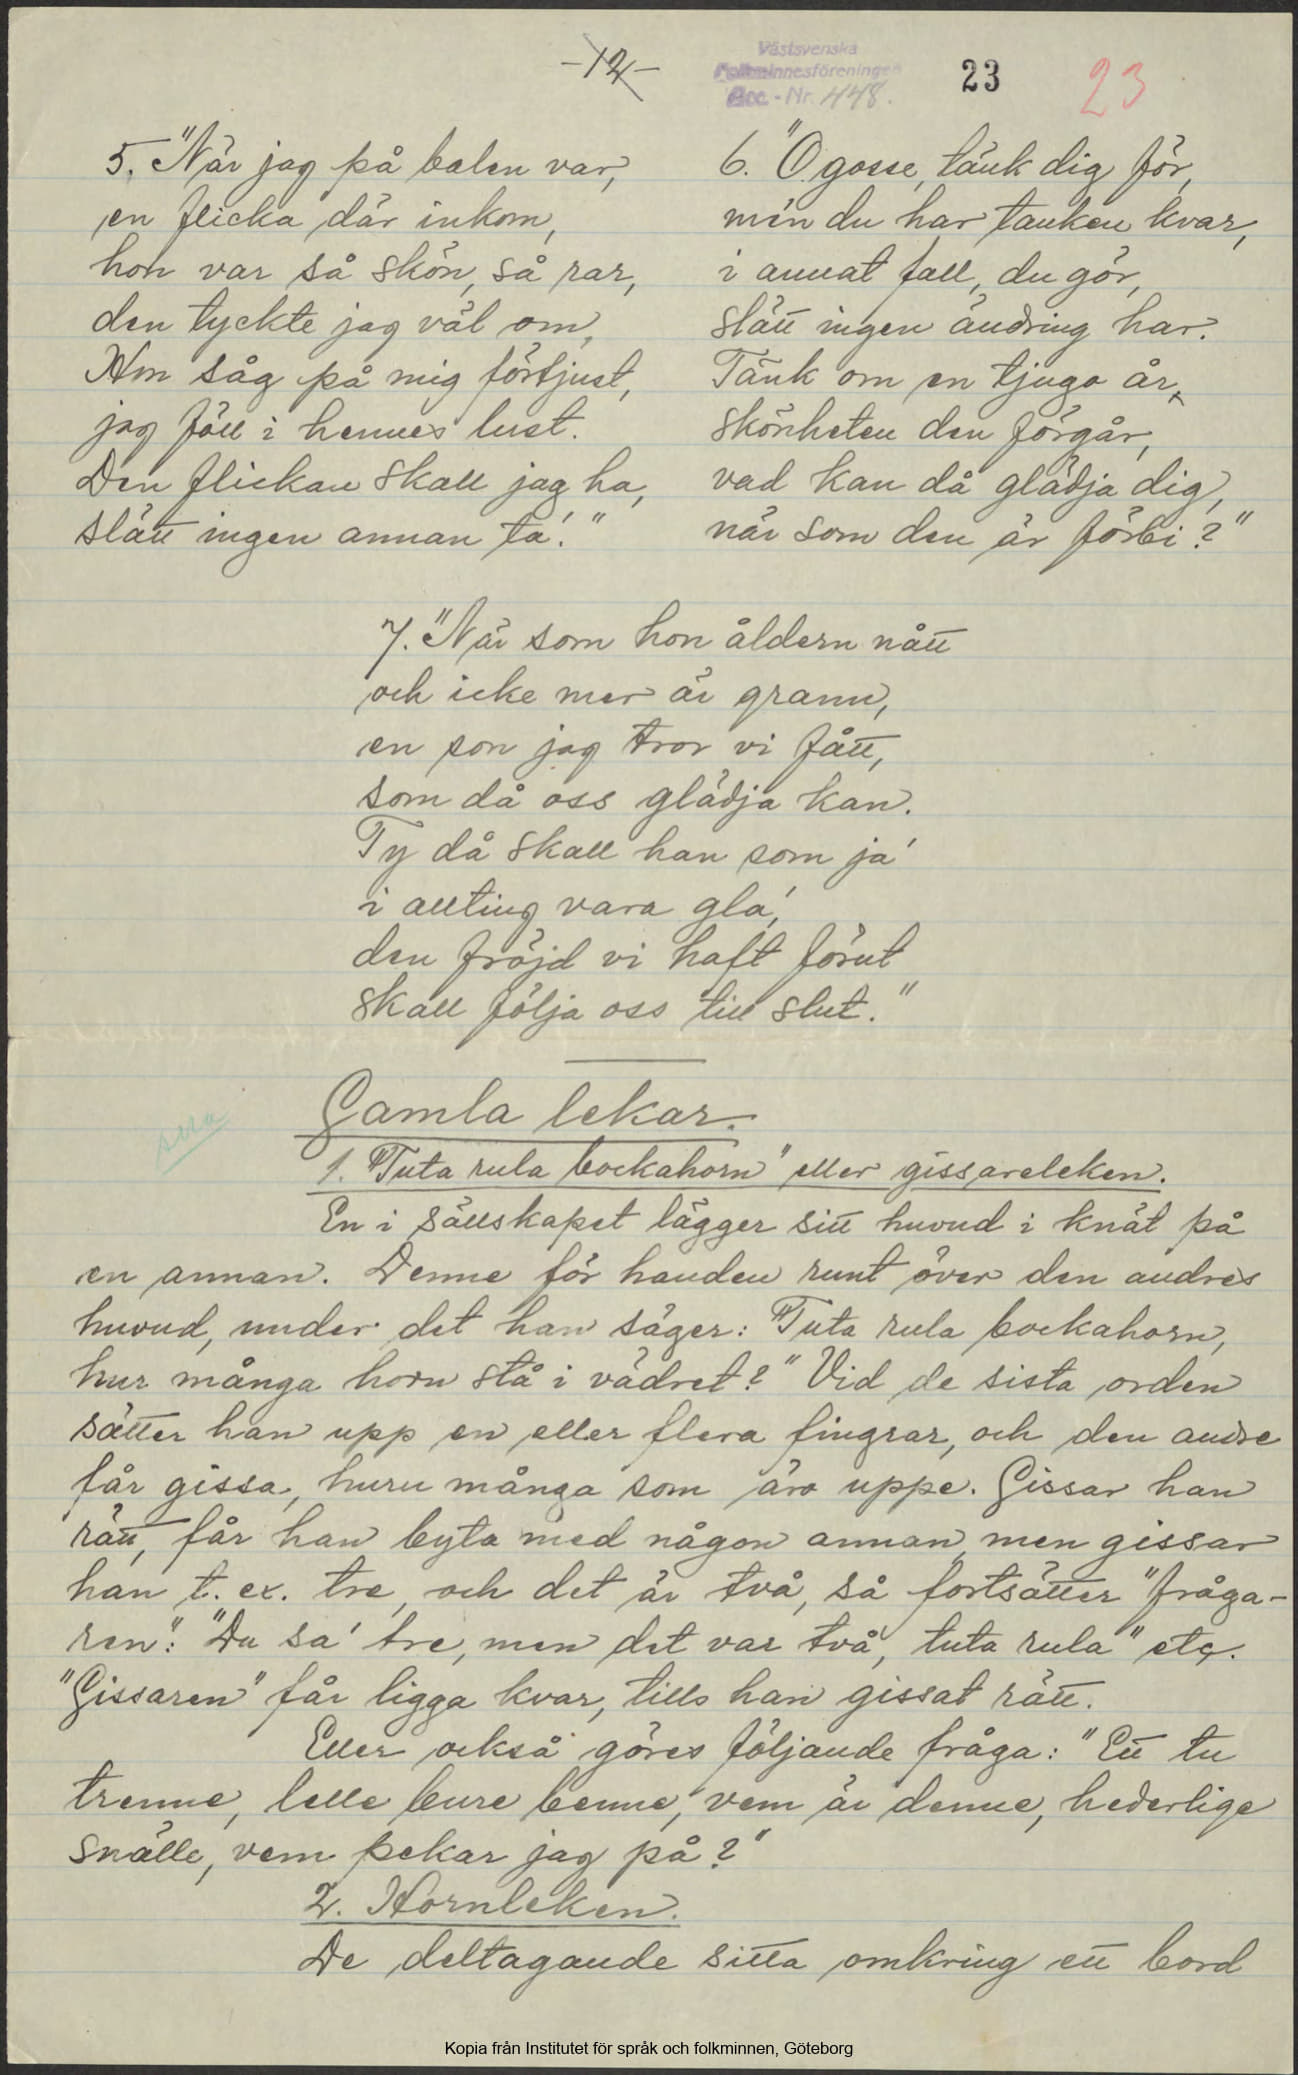 -12-
Västsvenska
Folkminnesföreningen
Acc.-Nr. 448.
23
23
5. "När jag på balen var,
en flicka där inkom,
hon var så skön, så rar,
den tyckte jag väl om,
Hon såg på mig förtjust,
jag föll i hennes lust.
Den flickan skall jag ha,
slätt ingen annan ta'."
6. "O gosse, tänk dig för,
min du har tanken kvar,
i annat fall, du gör,
slätt ingen ändring har.
Tänk om en tjugo år,
skönheten den förgår,
vad kan då glädja dig,
när som den är förbi?"
7. "När som hon åldern nått
och icke mer är grann,
en son jag tror vi fått,
som då oss glädja kan.
Ty då skall han som ja'
i allting vara gla',
den fröjd vi haft förut
skall följa oss till slut."
Gamla lekar.
1. "Tuta rula bockahorn" eller gissareleken.
En i sällskapet lägger sitt huvud i knät på
en annan. Denne för handen runt över den andres
huvud, under det han säger: "Tuta rula bockahorn,
hur många horn stå i vädret?" Vid de sista orden
sätter han upp en eller flera fingrar, och den andre
får gissa, huru många som äro uppe. Gissar han
rätt, får han byta med någon annan, men gissar
han t. ex. tre, och det är två, så fortsätter "fråga-
ren": "Du sa' tre, men det var två, tuta rula" etc.
"Gissaren" får ligga kvar, tills han gissat rätt.
Eller också göres följande fråga: "Ett tu
trenne, lelle bure benne, vem är denne, hederlige
snälle, vem pekar jag på?"
2. Hornleken.
De deltagande sitta omkring ett bord
Kopia från Institutet för språk och folkminnen, Göteborg